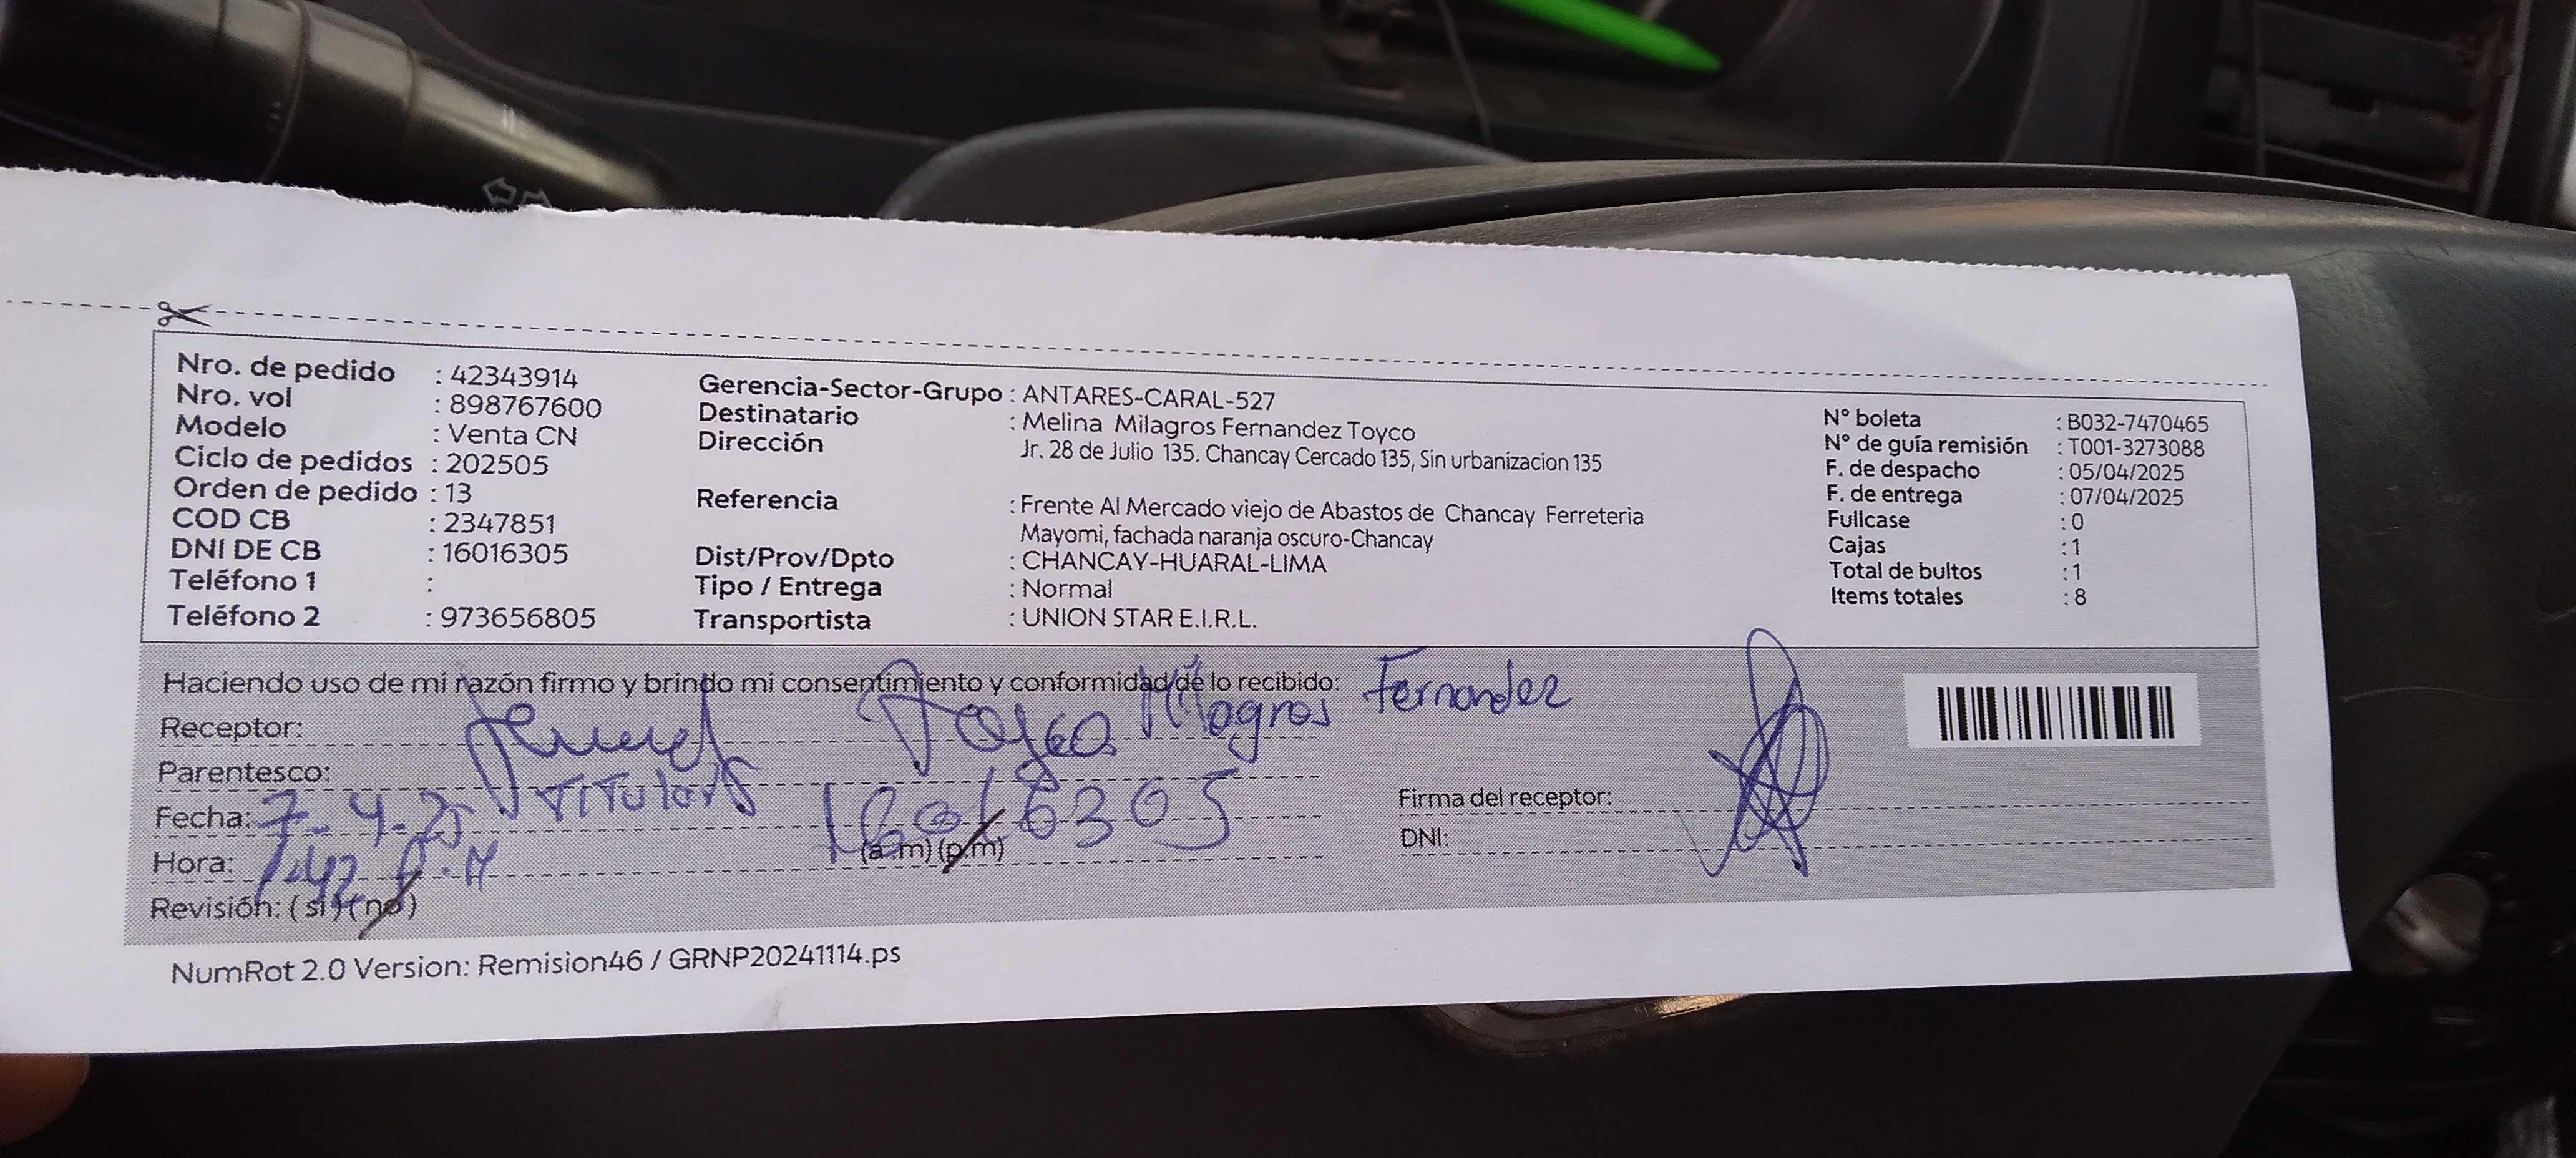 Nro. de pedido : 42343914
Nro. vol : 898767600
Modelo : Venta CN
Ciclo de pedidos : 202505
Orden de pedido : 13
COD CB : 2347851
DNI DE CB : 16016305
Teléfono 1 :
Teléfono 2 : 973656805
Gerencia-Sector-Grupo : ANTARES-CARAL-527
Destinatario : Melina Milagros Fernandez Toyco
Dirección Jr. 28 de Julio 135. Chancay Cercado 135, Sin urbanizacion 135
Referencia : Frente Al Mercado viejo de Abastos de Chancay Ferreteria
Mayomi, fachada naranja oscuro-Chancay
Dist/Prov/Dpto : CHANCAY-HUARAL-LIMA
Tipo / Entrega : Normal
Transportista : UNION STAR E.I.R.L.
N° boleta : B032-7470465
N° de guía remisión : T001-3273088
F. de despacho : 05/04/2025
F. de entrega : 07/04/2025
Fullcase : 0
Cajas : 1
Total de bultos : 1
Items totales : 8
Haciendo uso de mi razón firmo y brindo mi consentimiento y conformidad de lo recibido:
Receptor: Toyco Milagros Fernandez
Parentesco: Titular
Fecha: 7-4-25 16016305
Hora: 1:42 P.M (a.m) (p.m)
Revisión: (si) (no)
Firma del receptor:
DNI:
NumRot 2.0 Version: Remision46 / GRNP20241114.ps